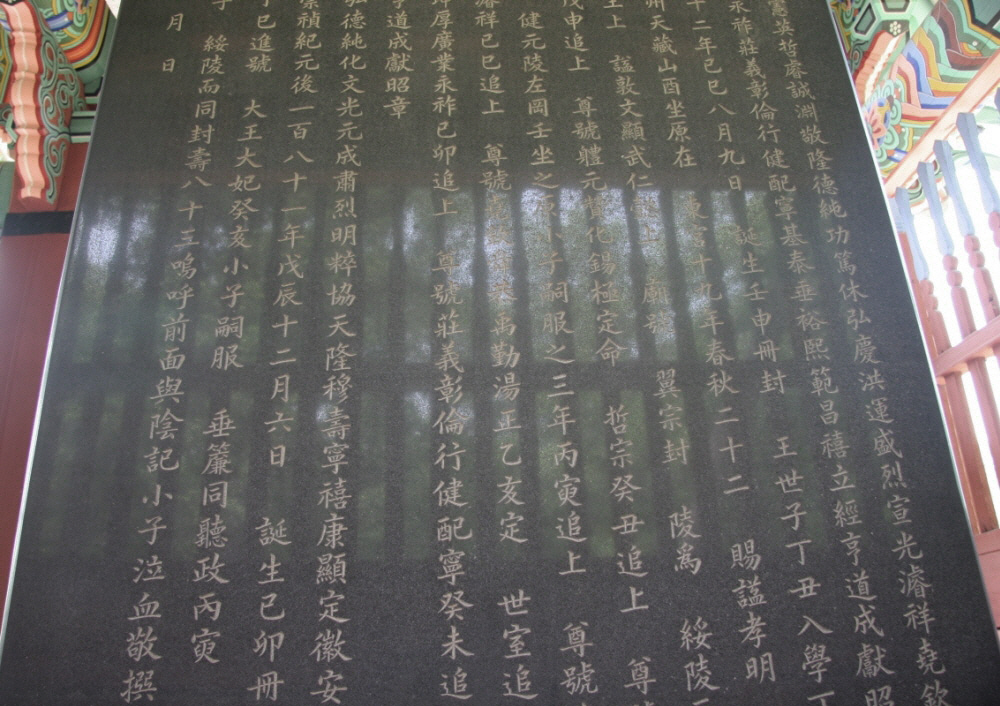 英哲睿誠淵敬隆德純功篤休弘慶洪運盛烈宣光濬祥堯欽
永祚莊義彰倫行健配寧基泰垂裕熙範昌禧立經亨道成獻昭
十二年己巳八月九日 誕生壬申冊封 王世子丁丑入學丁
州天藏山酉坐原在 東宮十九年春秋二十二 賜謚孝明
上 謚敦文顯武仁懿 上 廟號 翼宗封 陵爲 綏陵
戊申追上 尊號體元贊化錫極定命 哲宗癸丑追上 尊
健元陵左岡壬坐之原小子嗣服之三年丙寅追上 尊號
濬祥己巳追上 尊號堯欽舜恭禹勤湯正乙亥定 世室追
坤厚廣業永祚己卯追上 尊號莊義彰倫行健配寧癸未追
亨道成獻昭章
弘德純化文光元成肅烈明粹協天隆穆壽寧禧康顯定徽安
崇禎紀元後一百八十一年戊辰十二月六日 誕生己卯冊
丁巳進號 大王大妃癸亥小子嗣服 垂簾同聽政丙寅
綏陵而同封壽八十三嗚呼前面與陰記小子泣血敬撰
月 日